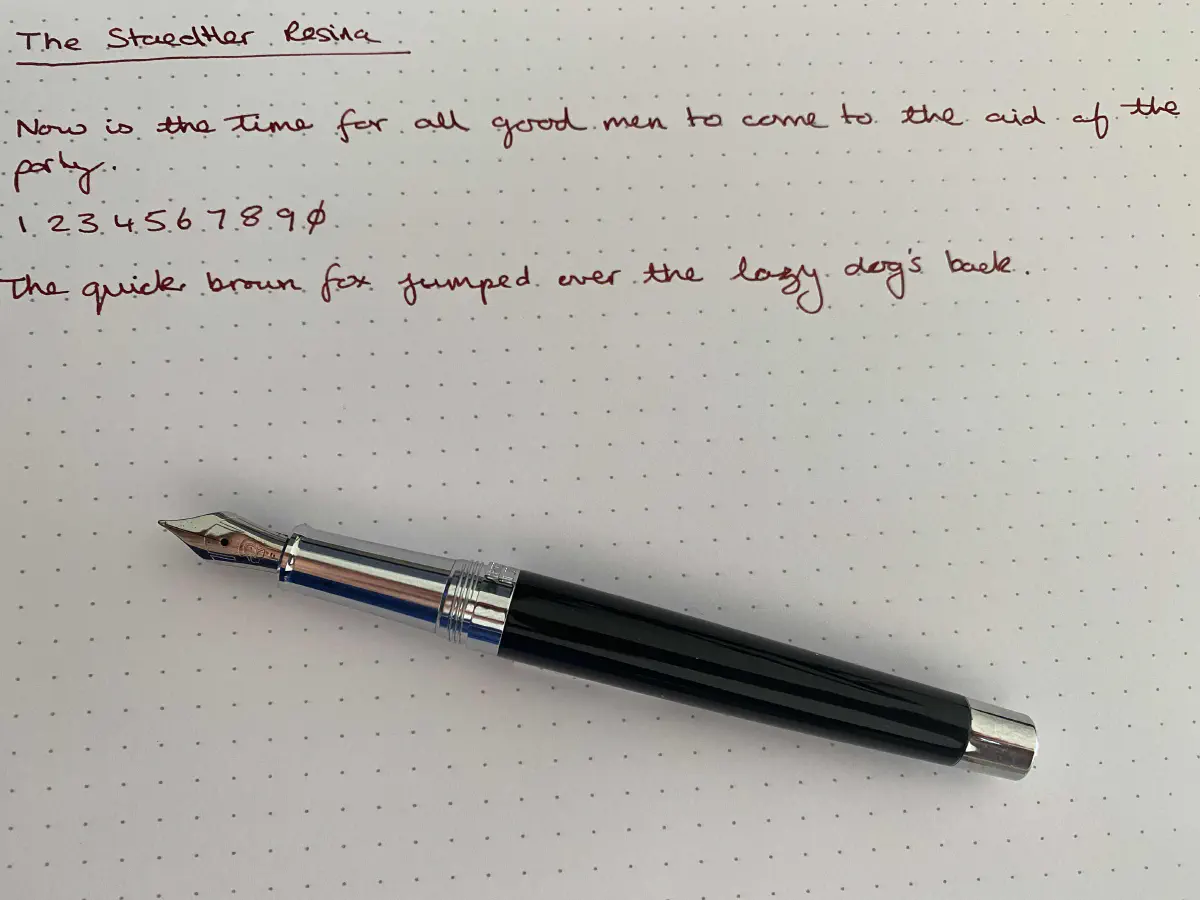 The Staedtler Resina
Now is the time for all good men to come to the aid of the
party.
1 2 3 4 5 6 7 8 9 0
The quick brown fox jumped over the lazy dog's back.